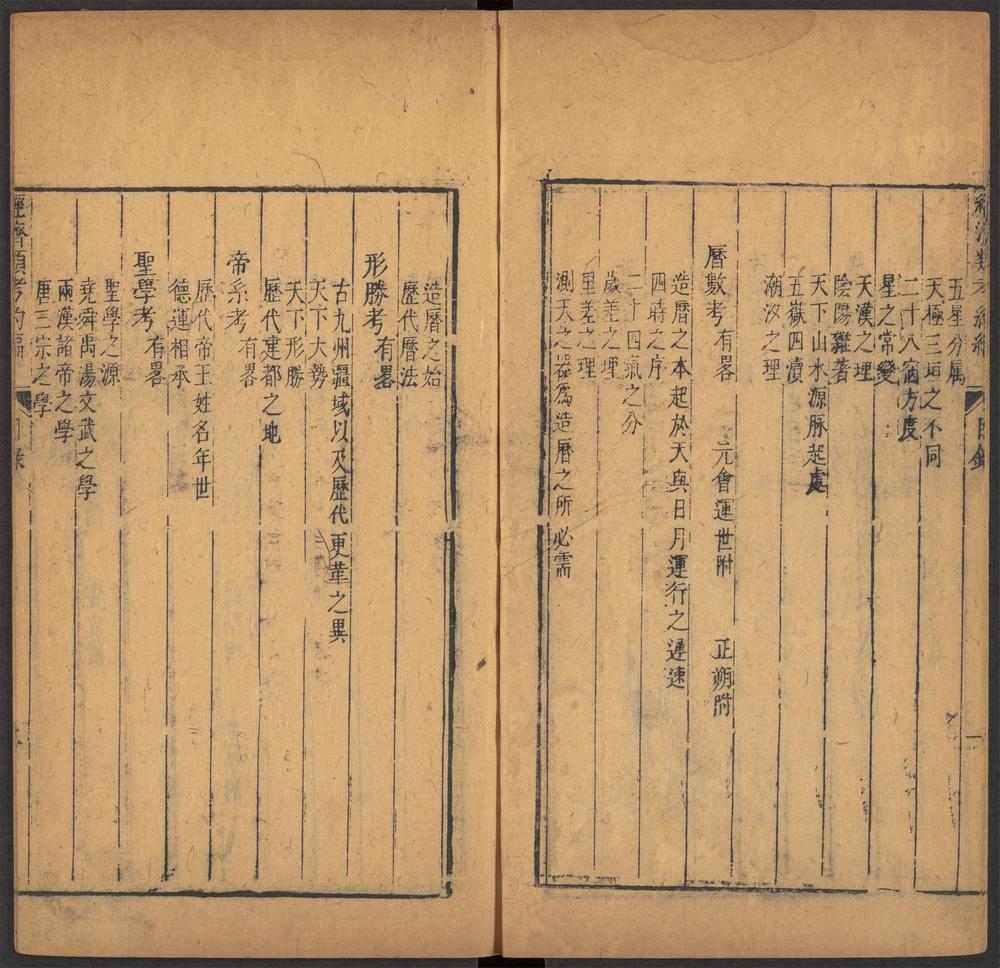 五星分属
天極三垣之不同
二十八宿方度
星之常變
天漢之理
陰陽雜著
天下山水源脉起處
五嶽四瀆
潮汐之理
曆數考 有畧 元會運世附 正朔附
造曆之本起於天與日月運行之遲速
四時之序
二十四氣之分
歲差之理
里差之理
測天之器爲造曆之所必需
造曆之始
歷代曆法
形勝考 有畧
古九州疆域以及歷代更革之異
天下大勢
天下形勝
歷代建都之地
帝系考 有畧
歷代帝王姓名年世
德運相承
聖學考 有畧
聖學之源
堯舜禹湯文武之學
兩漢諸帝之學
唐三宗之學
經濟類考約編 目錄